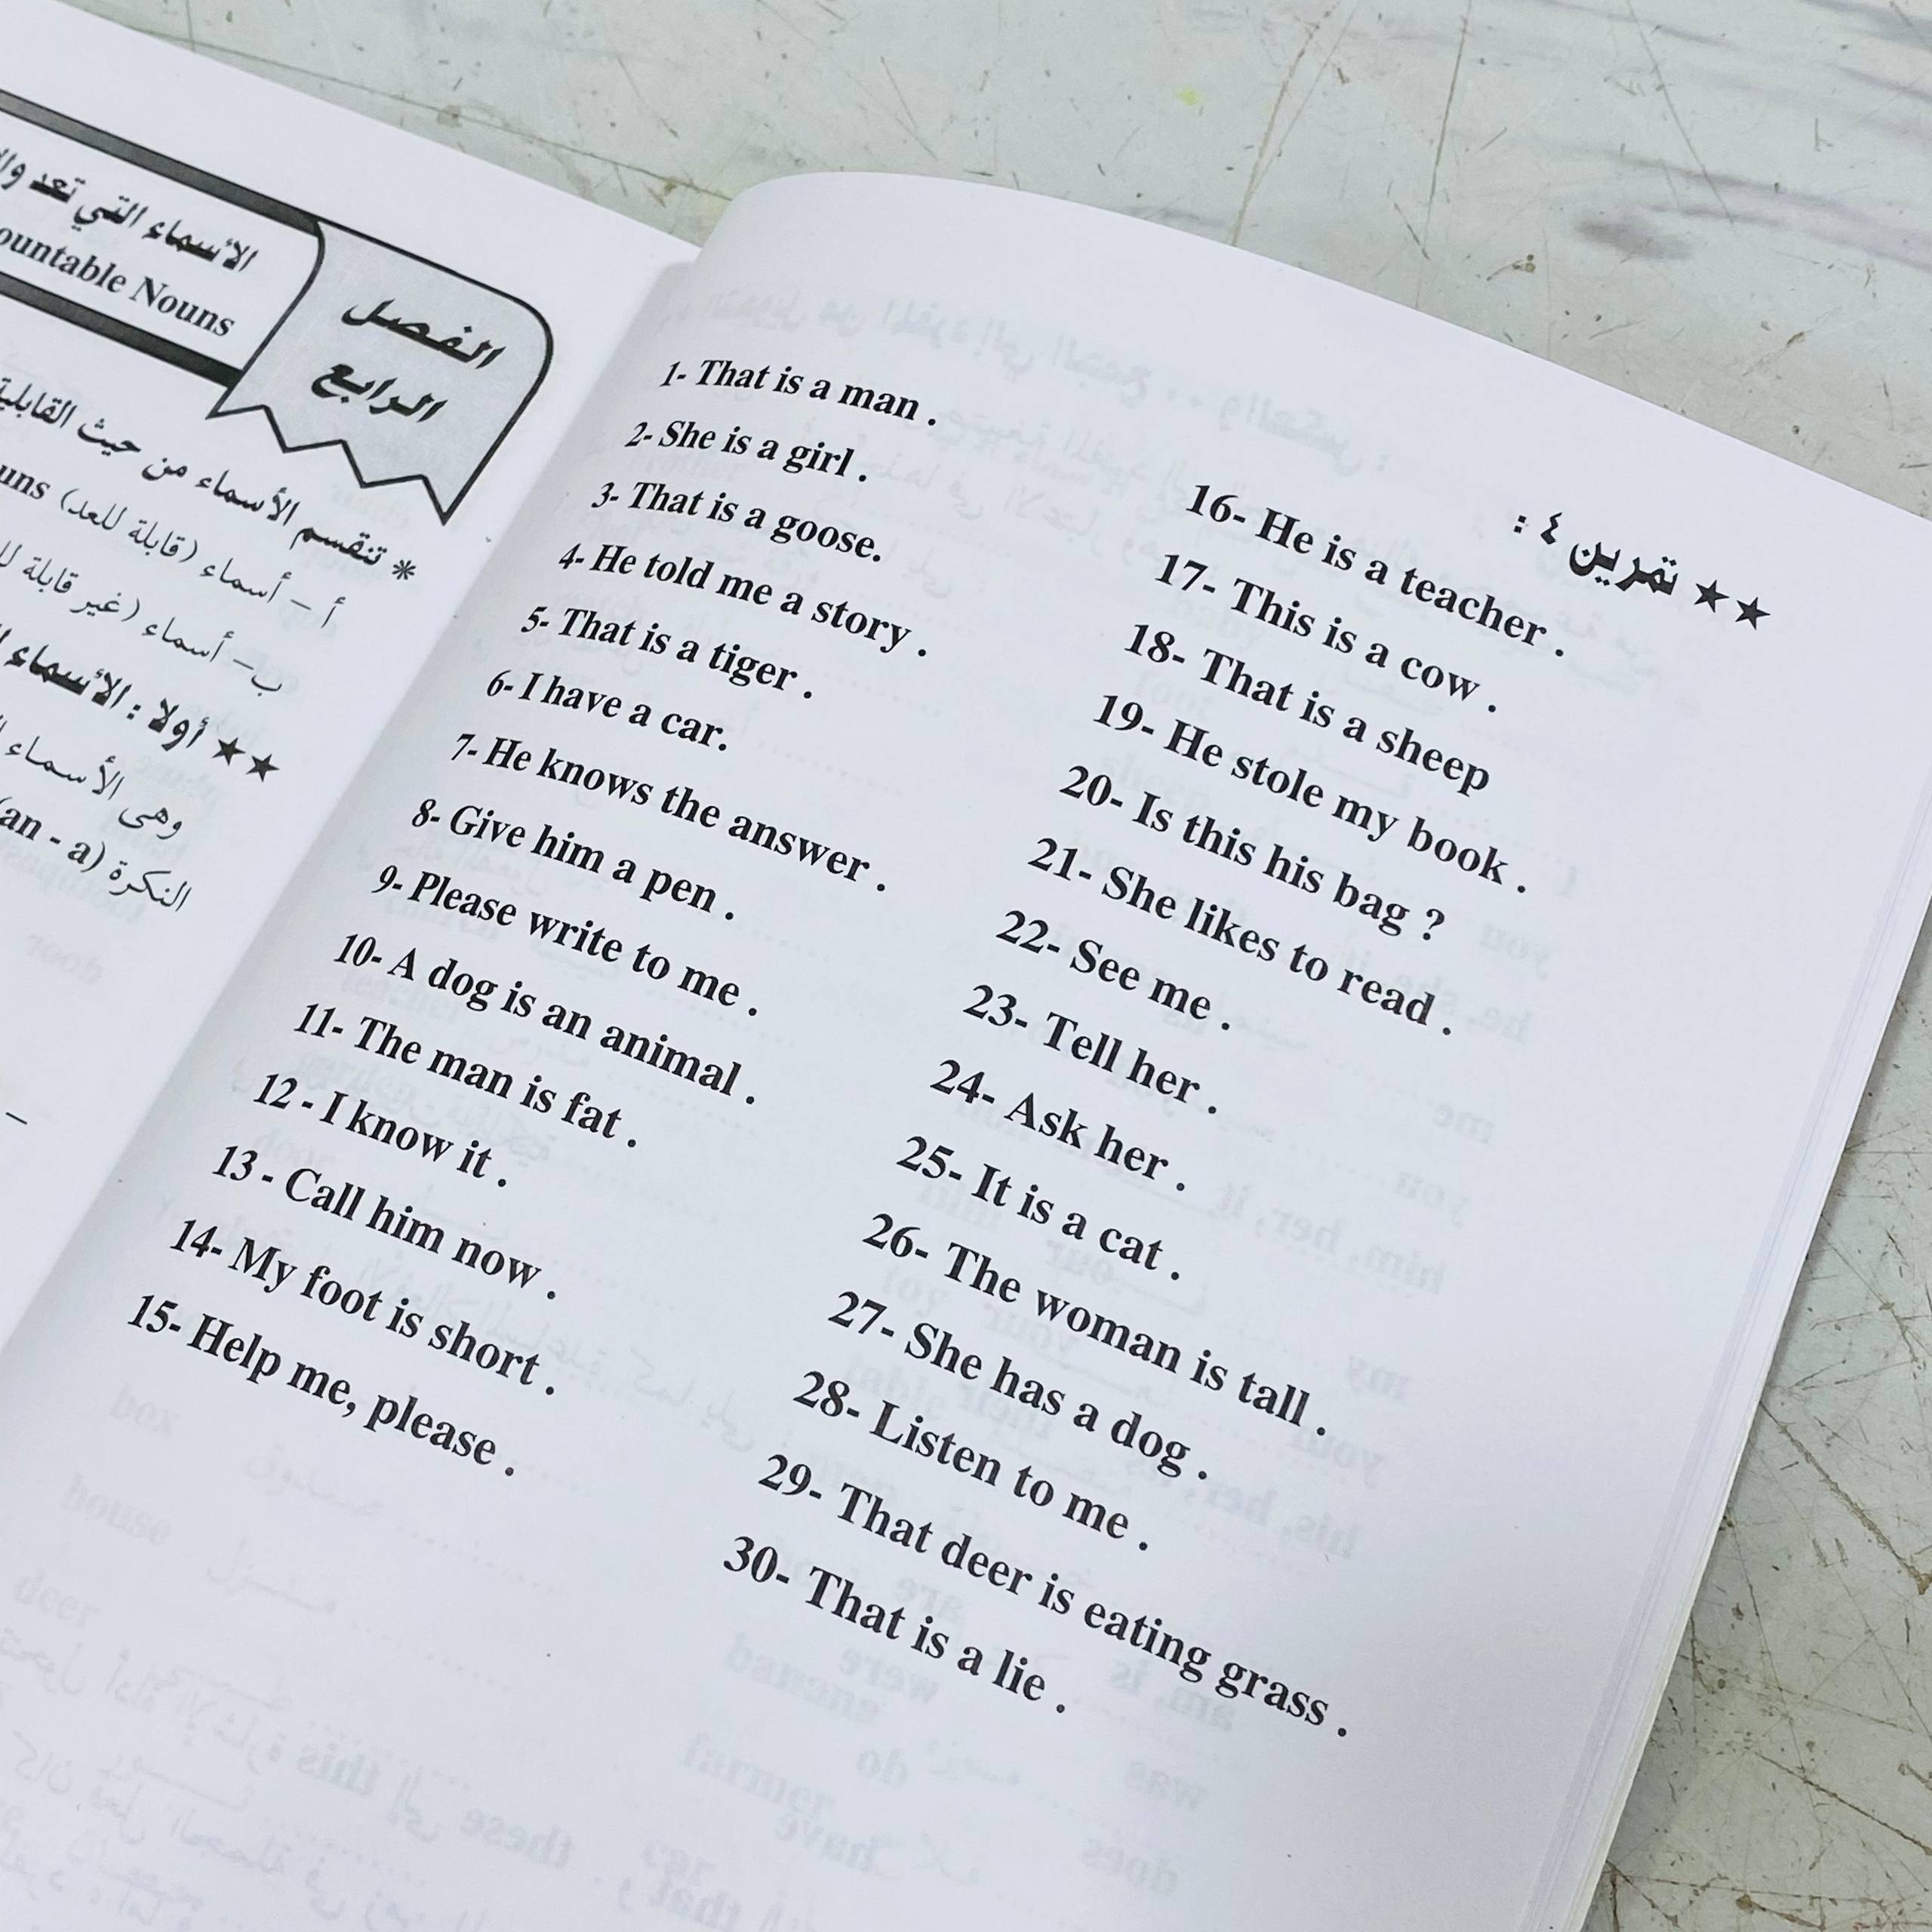 الأسماء التي تعد
Nouns
الفصل
الرابع
* تنقسم الأسماء من حيث
أ – أسماء (قابلة للعد)
ب– أسماء (غير قابلة
★★ أولا : الأسماء
وهى الأسماء
النكرة (an - a)
★★ تمرين ٤ :
1- That is a man .
2- She is a girl .
3- That is a goose.
4- He told me a story .
5- That is a tiger .
6- I have a car.
7- He knows the answer .
8- Give him a pen .
9- Please write to me .
10- A dog is an animal .
11- The man is fat .
12 - I know it .
13 - Call him now .
14- My foot is short .
15- Help me, please .
16- He is a teacher .
17- This is a cow .
18- That is a sheep
19- He stole my book .
20- Is this his bag ?
21- She likes to read .
22- See me .
23- Tell her .
24- Ask her .
25- It is a cat .
26- The woman is tall .
27- She has a dog .
28- Listen to me .
29- That deer is eating grass .
30- That is a lie .